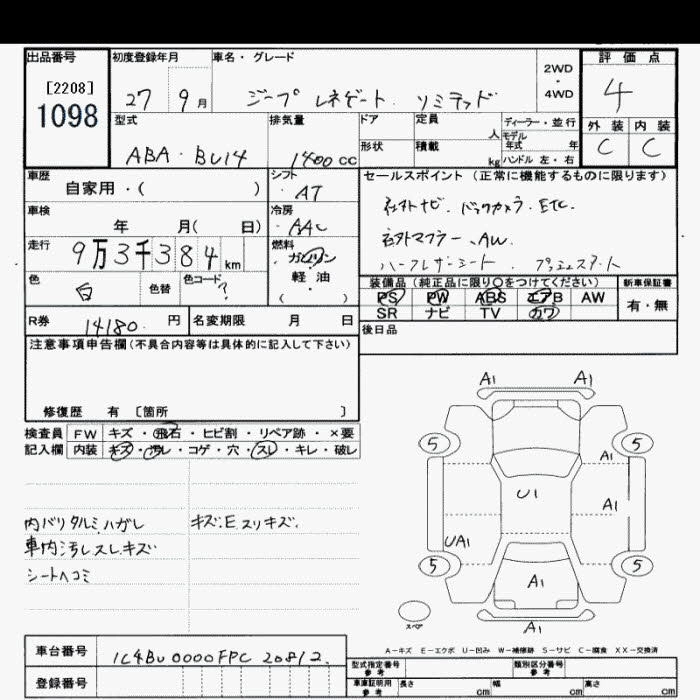 出品番号
[2208]
1098
初度登録年月
27 9月
車名・グレード
ジープ レネゲート. リミテッド
2WD
・
4WD
評価点
4
外装 内装
C C
型式
ABA・BU14
排気量
1400cc
ドア
形状
定員 人
積載 kg
ディーラー・並行
モデル年式 年
ハンドル 左・右
車歴
自家用・( )
シフト
・AT
車検
年 月( 日)
冷房
・AAC
走行
9万3千384km
燃料
ガソリン
・
軽油
( )
色
白
色替
色コード
?
R券
14180. 円
名変期限 月 日
セールスポイント(正常に機能するものに限ります)
社外ナビ. バックカメラ. ETC.
社外マフラー、AW.
ハーフレザーシート. プッシュスタート
装備品(純正品に限り○をつけてください)
PS PW ABS エアB AW
SR ナビ TV カワ
新車保証書
有・無
後日品
注意事項申告欄(不具合内容等は具体的に記入して下さい)
修復歴 有 〔箇所 〕
検査員
記入欄
FW キズ・飛石・ヒビ割・リペア跡・×要
内装 キズ・汚レ・コゲ・穴・スレ・キレ・破レ
内バリ タルミ ハガレ
キズ:E スリキズ.
車内汚レスレキズ
シートヘコミ
A1 A1
5 5
A1
U1
A1
UA1
5 5
A1
スペア
A1
A-キズ E-エクボ U-凹み W-補修跡 S-サビ C-腐食 XX-交換済
車台番号
1C4BU0000FPC20812.
登録番号
型式指定番号
参考
類別区分番号
参考
車庫証明用
参考
長さ cm
幅 cm
高さ cm